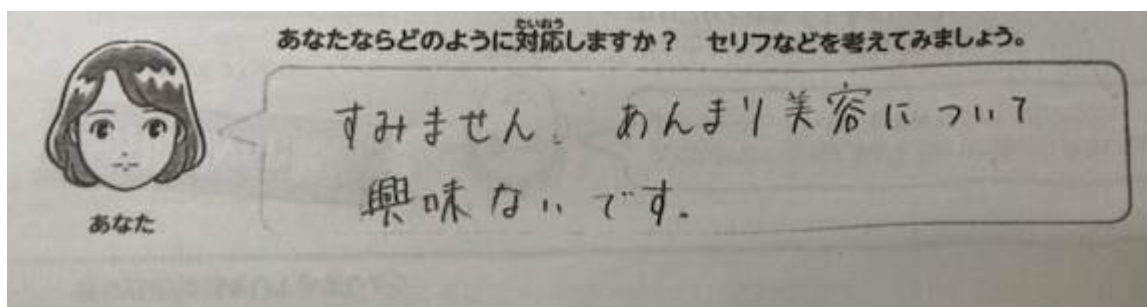 あなたならどのように対応しますか？　セリフなどを考えてみましょう。
すみません。あんまり美容について
興味ないです。
あなた